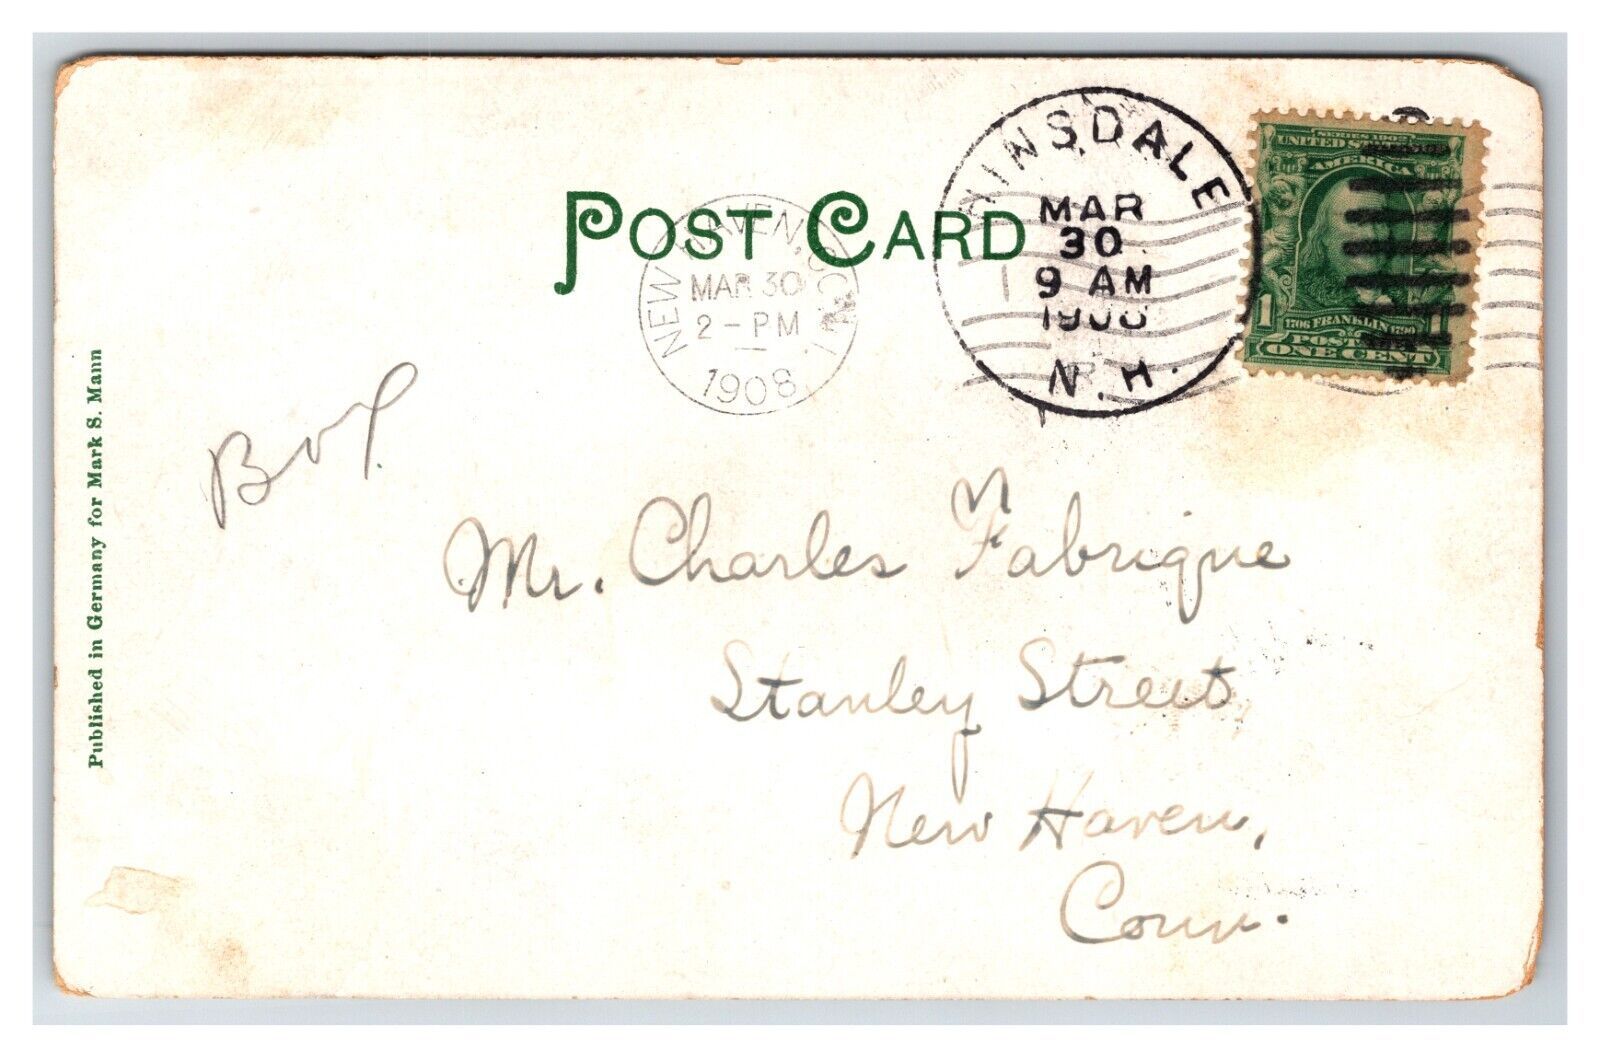 POST CARD
HINSDALE
MAR
30
9 AM
1908
N.H.
NEW HAVEN, CONN.
MAR 30
2-PM
1908
SERIES 1902
UNITED STATES OF
AMERICA
1706 FRANKLIN 1790
1 1
POSTAGE
ONE CENT
Published in Germany for Mark S. Mann
Mr. Charles Fabrique
Stanley Street
New Haven,
Conn.